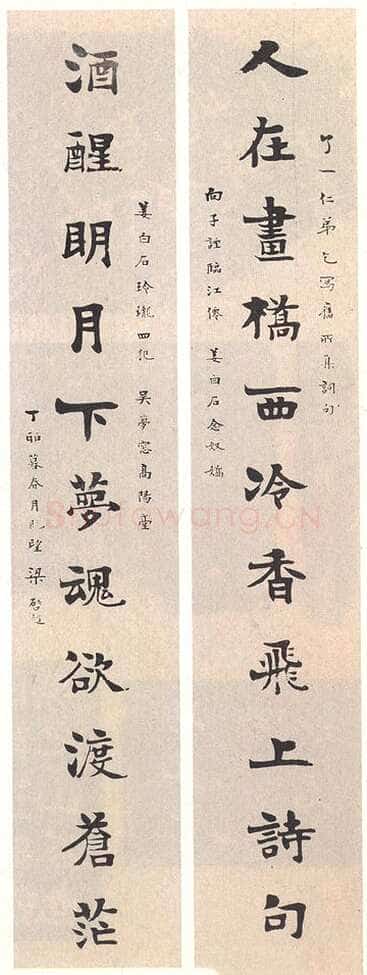 了一仁弟乞寫舊所集詞句
人在畫橋西冷香飛上詩句
向子諲臨江僊 姜白石念奴嬌
姜白石玲瓏四犯 吳夢窗高陽臺
酒醒明月下夢魂欲渡蒼茫
丁卯暮春月望 梁啓超
Shufawang.CN